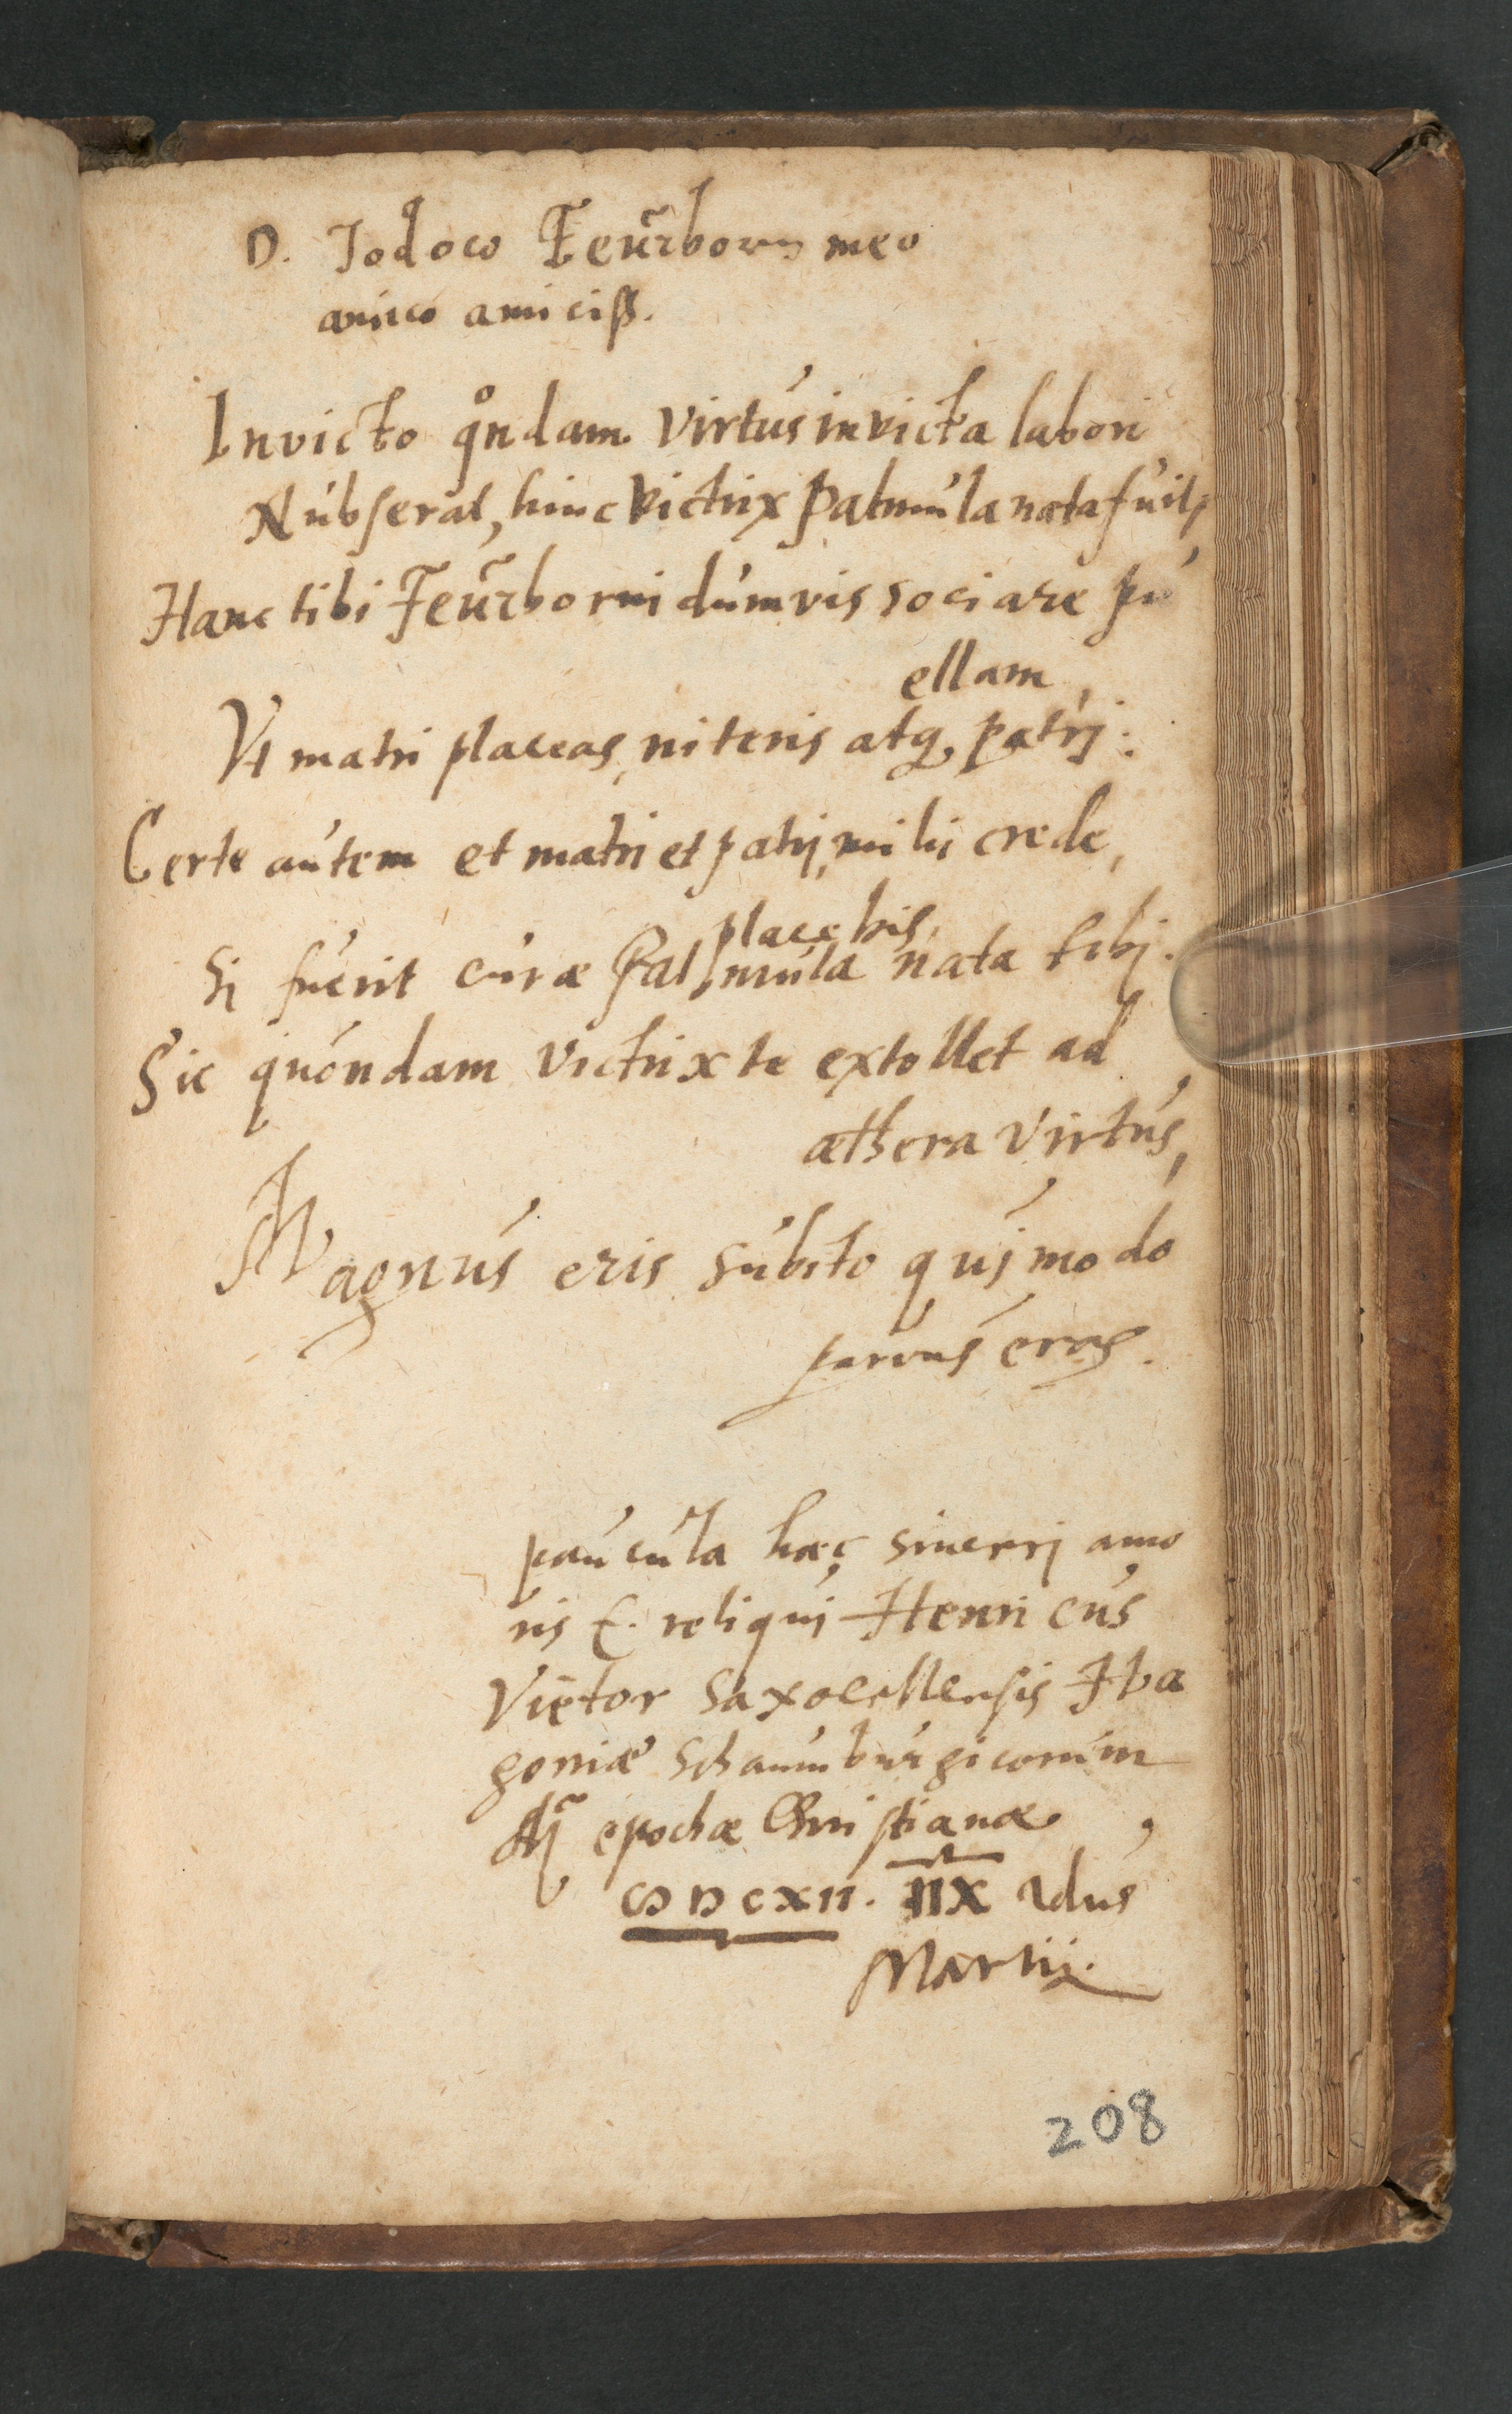 D. Jodoco Feurborn meo
amico amiciss.
Invicto qͦndam virtus invicta labori
Nubserat, hinc victrix Palmula nata fuit,
Hanc tibi Feurborni dum vis sociare pu
ellam,
Vt matri placeas, niteris atq, patrj:
Certe autem et matri et patrj, mihi crede,
placebis,
Sj fuerit curæ Palmula nata tibj.
Sic quondam victrix te extollet ad
æthera virtus,
Magnus eris subito quj modo
parvus eras.
paucula hæc sincerj amo
ris E. reliquj Henricus
Viëtor Saxocellensis
goniæ Schaumburgicorum
Aº epochæ Christianæ,
CIↃ IↃ CXII. IIX Idus
Martij.
208